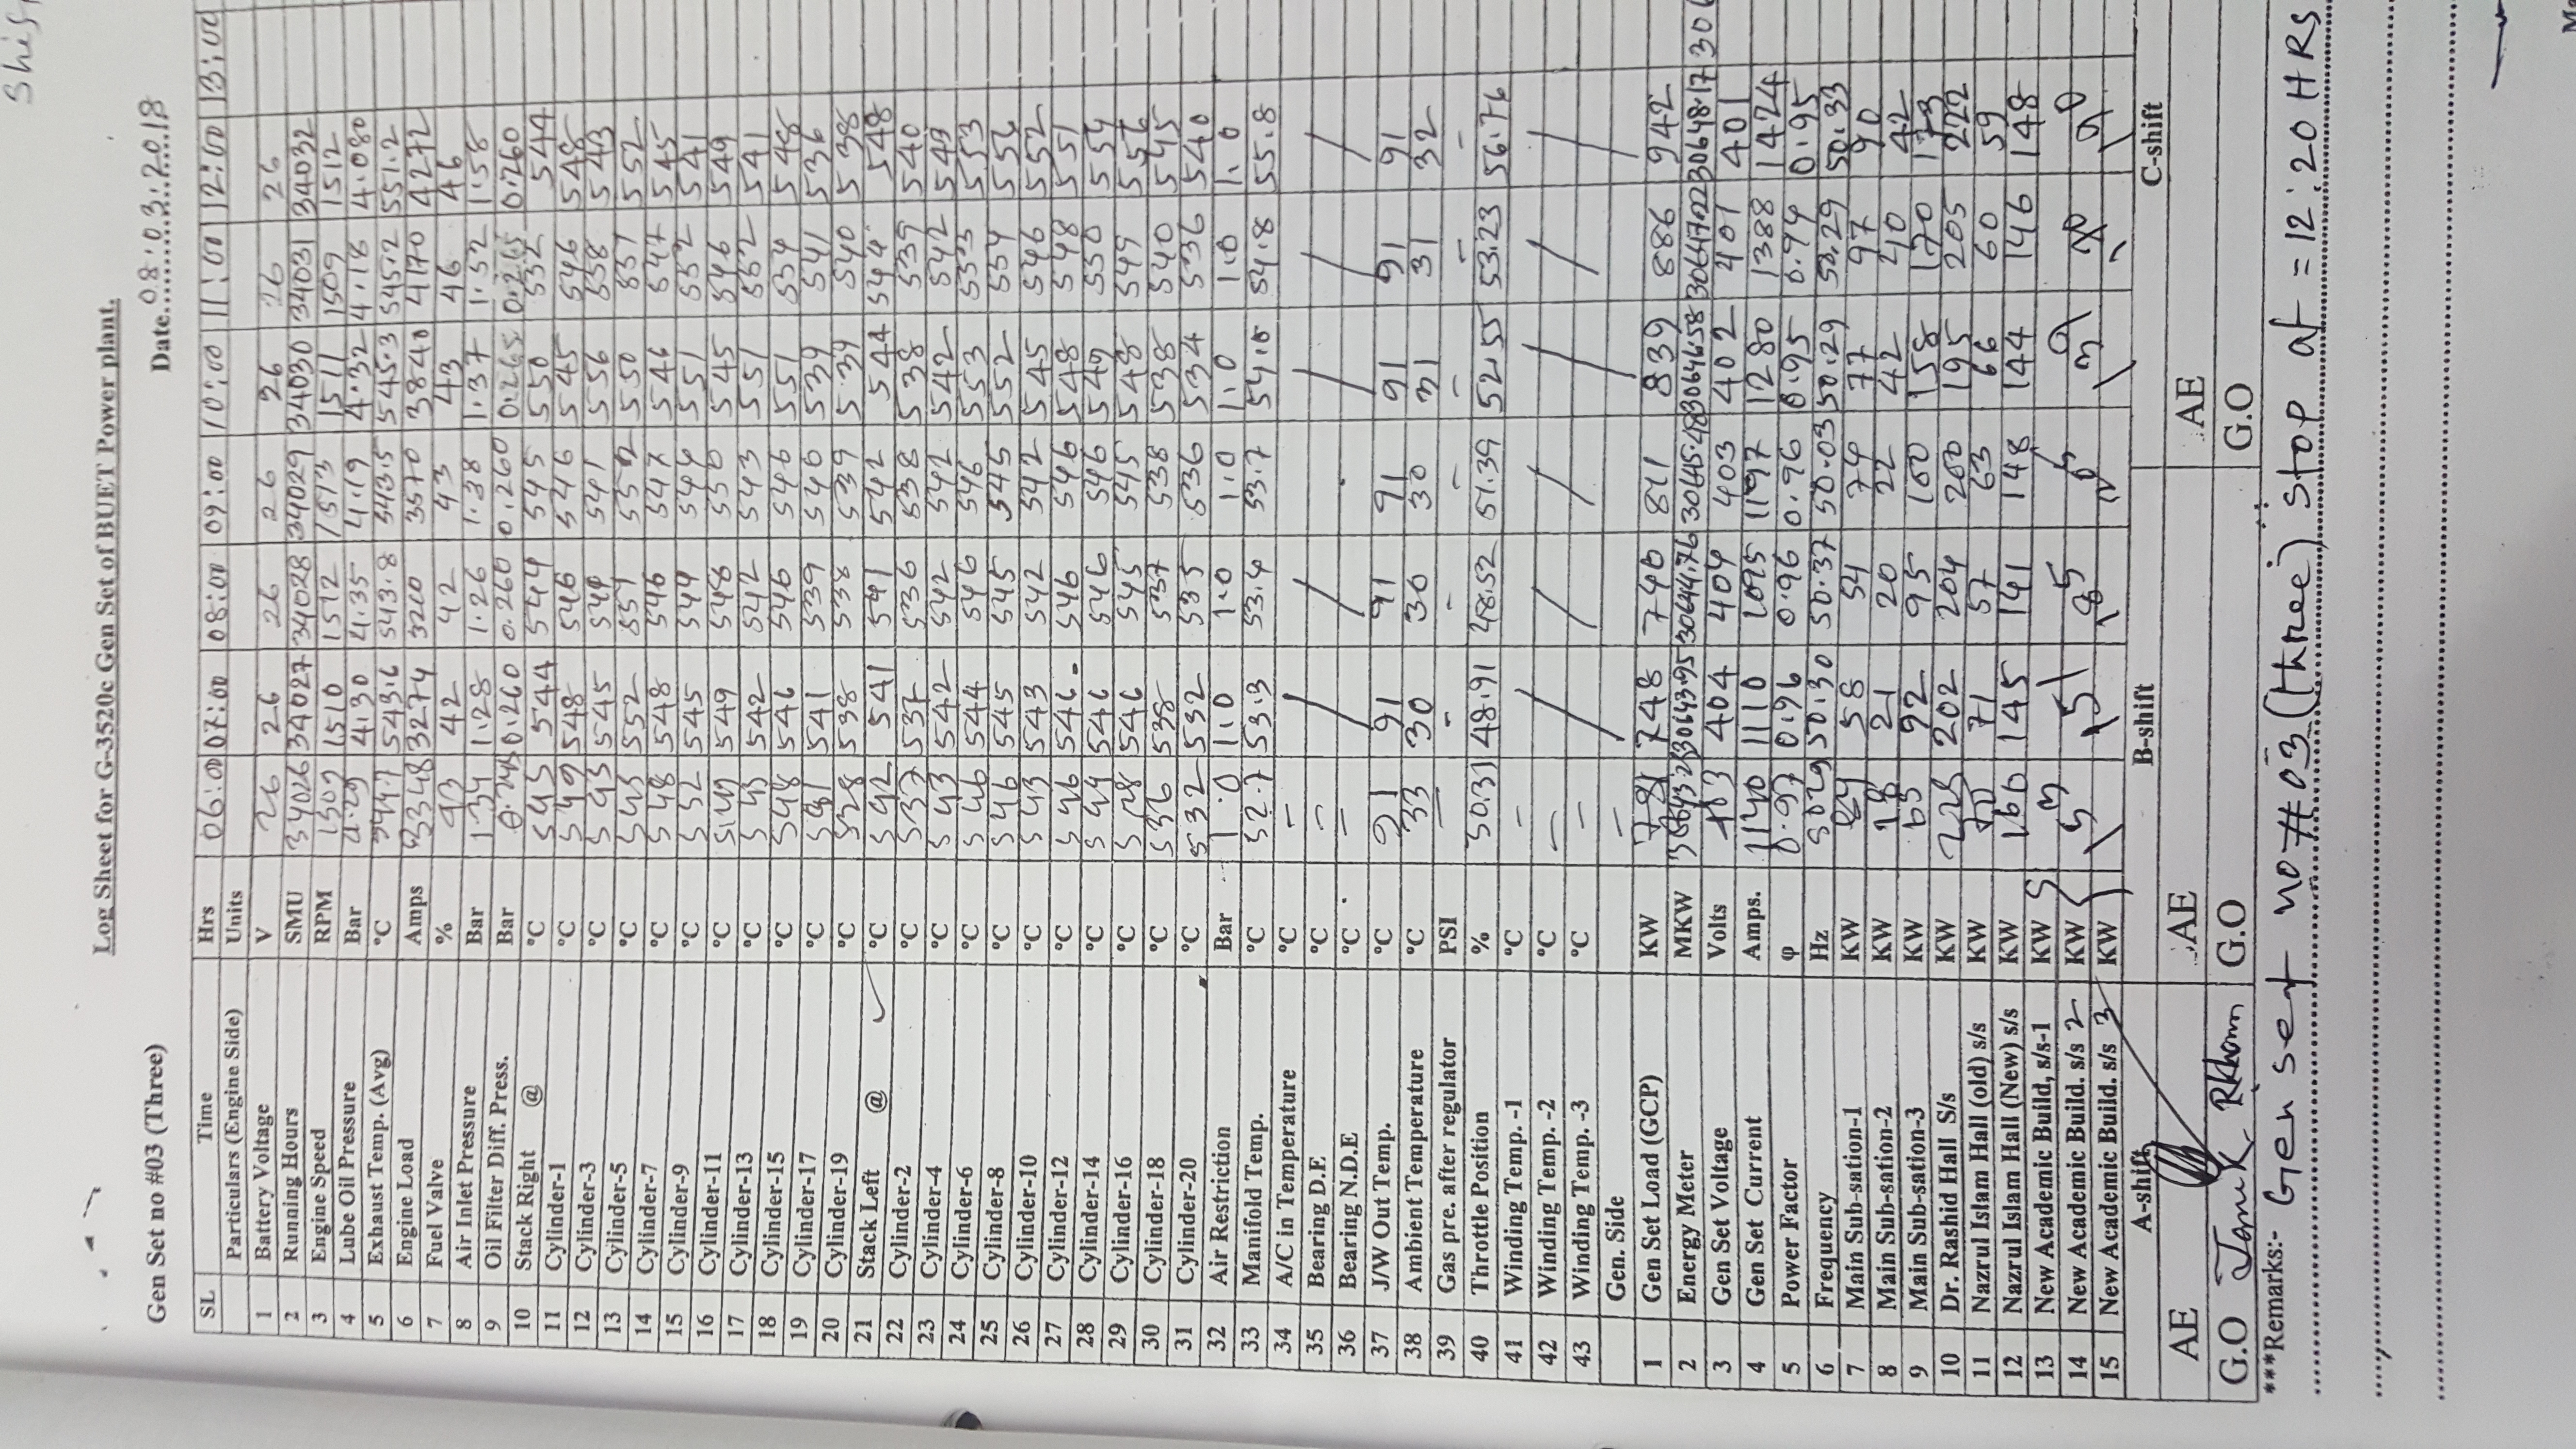 Log Sheet for G-3520c Gen Set of BUET Power plant.
Gen Set no #03 (Three) Date 08:03:2018
SL Time Hrs 06:00 07:00 08:00 09:00 10:00 11:00 12:00 13:00
Particulars (Engine Side) Units
1 Battery Voltage V 26 26 26 26 26 26 26
2 Running Hours SMU 34026 34027 34028 34029 34030 34031 34032
3 Engine Speed RPM 1509 1510 1512 1513 1511 1509 1512
4 Lube Oil Pressure Bar 4.29 4.30 4.35 4.19 4.32 4.18 4.080
5 Exhaust Temp. (Avg) °C 543.6 543.8 543.5 545.3 545.2 551.2
6 Engine Load Amps 3348 3274 3200 3570 3840 4170 4272
7 Fuel Valve % 43 42 42 43 43 46 46
8 Air Inlet Pressure Bar 1.34 1.28 1.26 1.38 1.37 1.52 1.58
9 Oil Filter Diff. Press. Bar 0.260 0.260 0.260 0.265 0.265 0.260
10 Stack Right @ °C 545 544 544 545 550 552 544
11 Cylinder-1 °C 549 548 546 546 545 546 548
12 Cylinder-3 °C 543 545 541 556 558 543
13 Cylinder-5 °C 545 552 551 552 550 551 552
14 Cylinder-7 °C 548 548 546 547 546 547 545
15 Cylinder-9 °C 552 545 544 544 551 552 541
16 Cylinder-11 °C 549 549 548 550 545 546 549
17 Cylinder-13 °C 543 542 542 543 551 552 541
18 Cylinder-15 °C 548 546 546 546 551 554 548
19 Cylinder-17 °C 541 541 539 540 539 541 536
20 Cylinder-19 °C 538 538 538 539 539 540 538
21 Stack Left @ ✓ °C 542 541 541 542 544 544 548
22 Cylinder-2 °C 537 537 536 538 538 539 540
23 Cylinder-4 °C 543 542 542 542 542 542 543
24 Cylinder-6 °C 546 544 546 546 553 553 553
25 Cylinder-8 °C 546 545 545 545 552 554 556
26 Cylinder-10 °C 543 543 542 542 545 546 552
27 Cylinder-12 °C 546 546 546 546 548 548 551
28 Cylinder-14 °C 544 546 546 546 549 550 554
29 Cylinder-16 °C 546 545 545 548 549 556
30 Cylinder-18 °C 536 538 537 538 538 540 545
31 Cylinder-20 °C 532 532 535 536 534 536 540
32 Air Restriction Bar 1.0 1.0 1.0 1.0 1.0 1.0 1.0
33 Manifold Temp. °C 52.7 53.3 53.4 53.7 54.0 54.8 55.8
34 A/C in Temperature °C – / / / / /
35 Bearing D.E °C –
36 Bearing N.D.E °C –
37 J/W Out Temp. °C 91 91 91 91 91 91 91
38 Ambient Temperature °C 33 30 30 30 31 31 32
39 Gas pre. after regulator PSI – – – – – – –
40 Throttle Position % 50.31 48.91 48.52 51.39 52.55 53.23 56.76
41 Winding Temp. -1 °C – / / / / / /
42 Winding Temp. -2 °C –
43 Winding Temp. -3 °C –
Gen. Side –
1 Gen Set Load (GCP) KW 781 748 740 811 839 886 942
2 Energy Meter MKW 30643.95 30644.76 30645.48 30646.58 30647.22 30648.17 306
3 Gen Set Voltage Volts 403 404 404 403 402 401 401
4 Gen Set Current Amps. 1140 1110 1095 1197 1280 1388 1424
5 Power Factor φ 0.97 0.96 0.96 0.96 0.95 0.94 0.95
6 Frequency Hz 5029 50.30 50.37 50.03 50.29 50.29 50.33
7 Main Sub-sation-1 KW 58 54 74 77 97 90
8 Main Sub-sation-2 KW 18 21 20 22 42 40 42
9 Main Sub-sation-3 KW 65 92 95 100 158 170 173
10 Dr. Rashid Hall S/s KW 225 202 204 200 195 205 222
11 Nazrul Islam Hall (old) s/s KW 70 71 57 63 66 60 59
12 Nazrul Islam Hall (New) s/s KW 160 145 141 148 144 146 148
13 New Academic Build, s/s-1 KW
14 New Academic Build. s/s 2 KW 153 151 185 205 139 190
15 New Academic Build. s/s 3 KW
A-shift B-shift C-shift
AE AE AE
G.O G.O G.O
***Remarks:- Gen set no #03 (three) stop at = 12:20 HRS